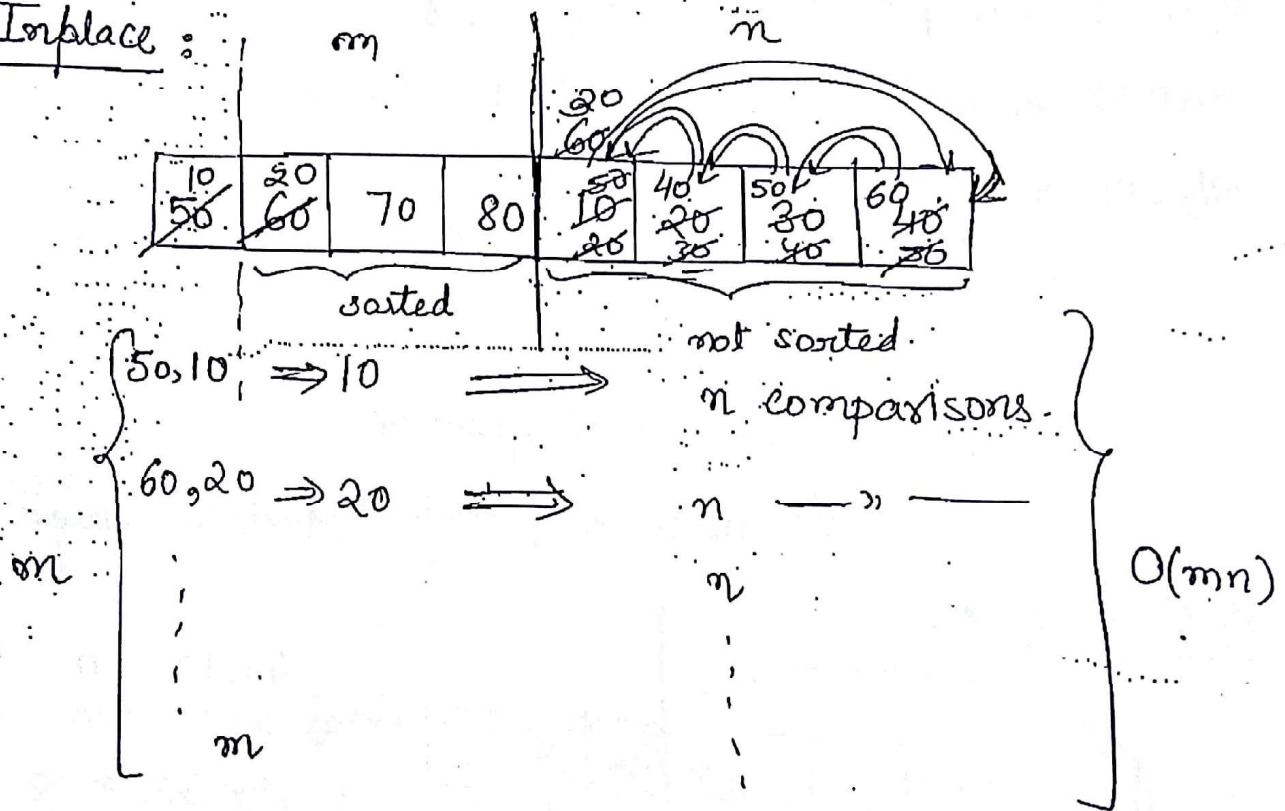 Inplace :
m n
20
60
10 20 50 40 50 60
50 60 70 80 10 20 30 40
20 30 40 50
sorted
not sorted.
50,10 ⇒ 10 ⇒ n comparisons.
60,20 ⇒ 20 ⇒ n — " —
m n O(mn)
m